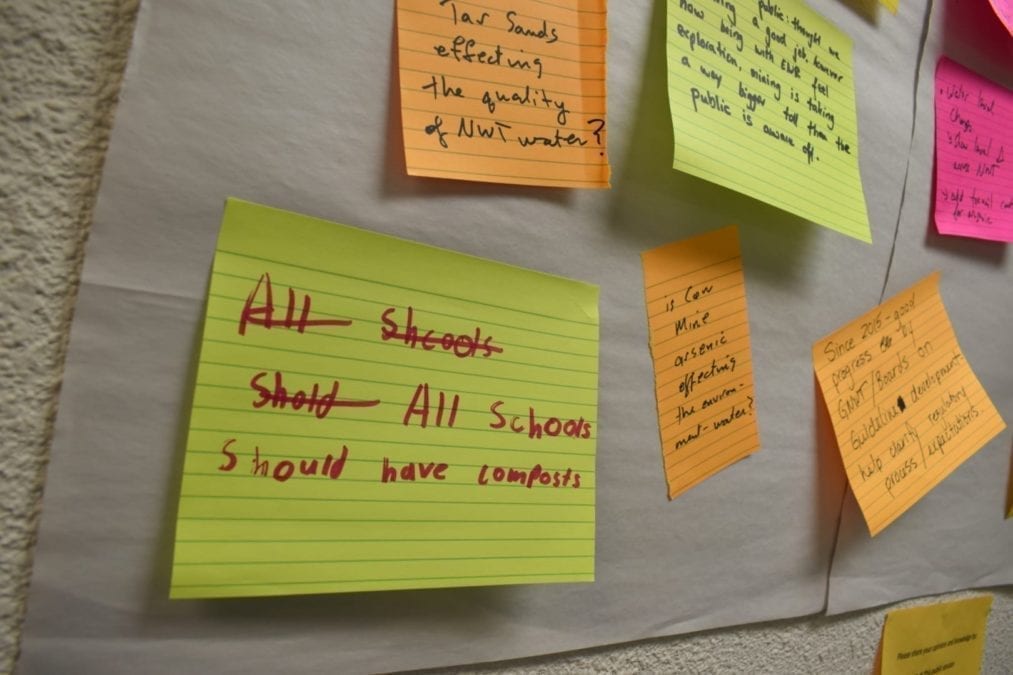 Tar Sands
effecting
the quality
of NWT water?
public: thought we
a good job. however
now being with ENR feel
exploration, mining is taking
a way bigger toll then the
public is aware off.
Water level
Change
NWT
All Shcools
Shold All Schools
Should have composts
is Con
Mine
arsenic
effecting
the environ-
ment-water?
Since 2015 - good
progress by
GNWT/Boards on
Guideline development
help clarify regulatory
process/expectations.
Please share your opinion and knowledge by